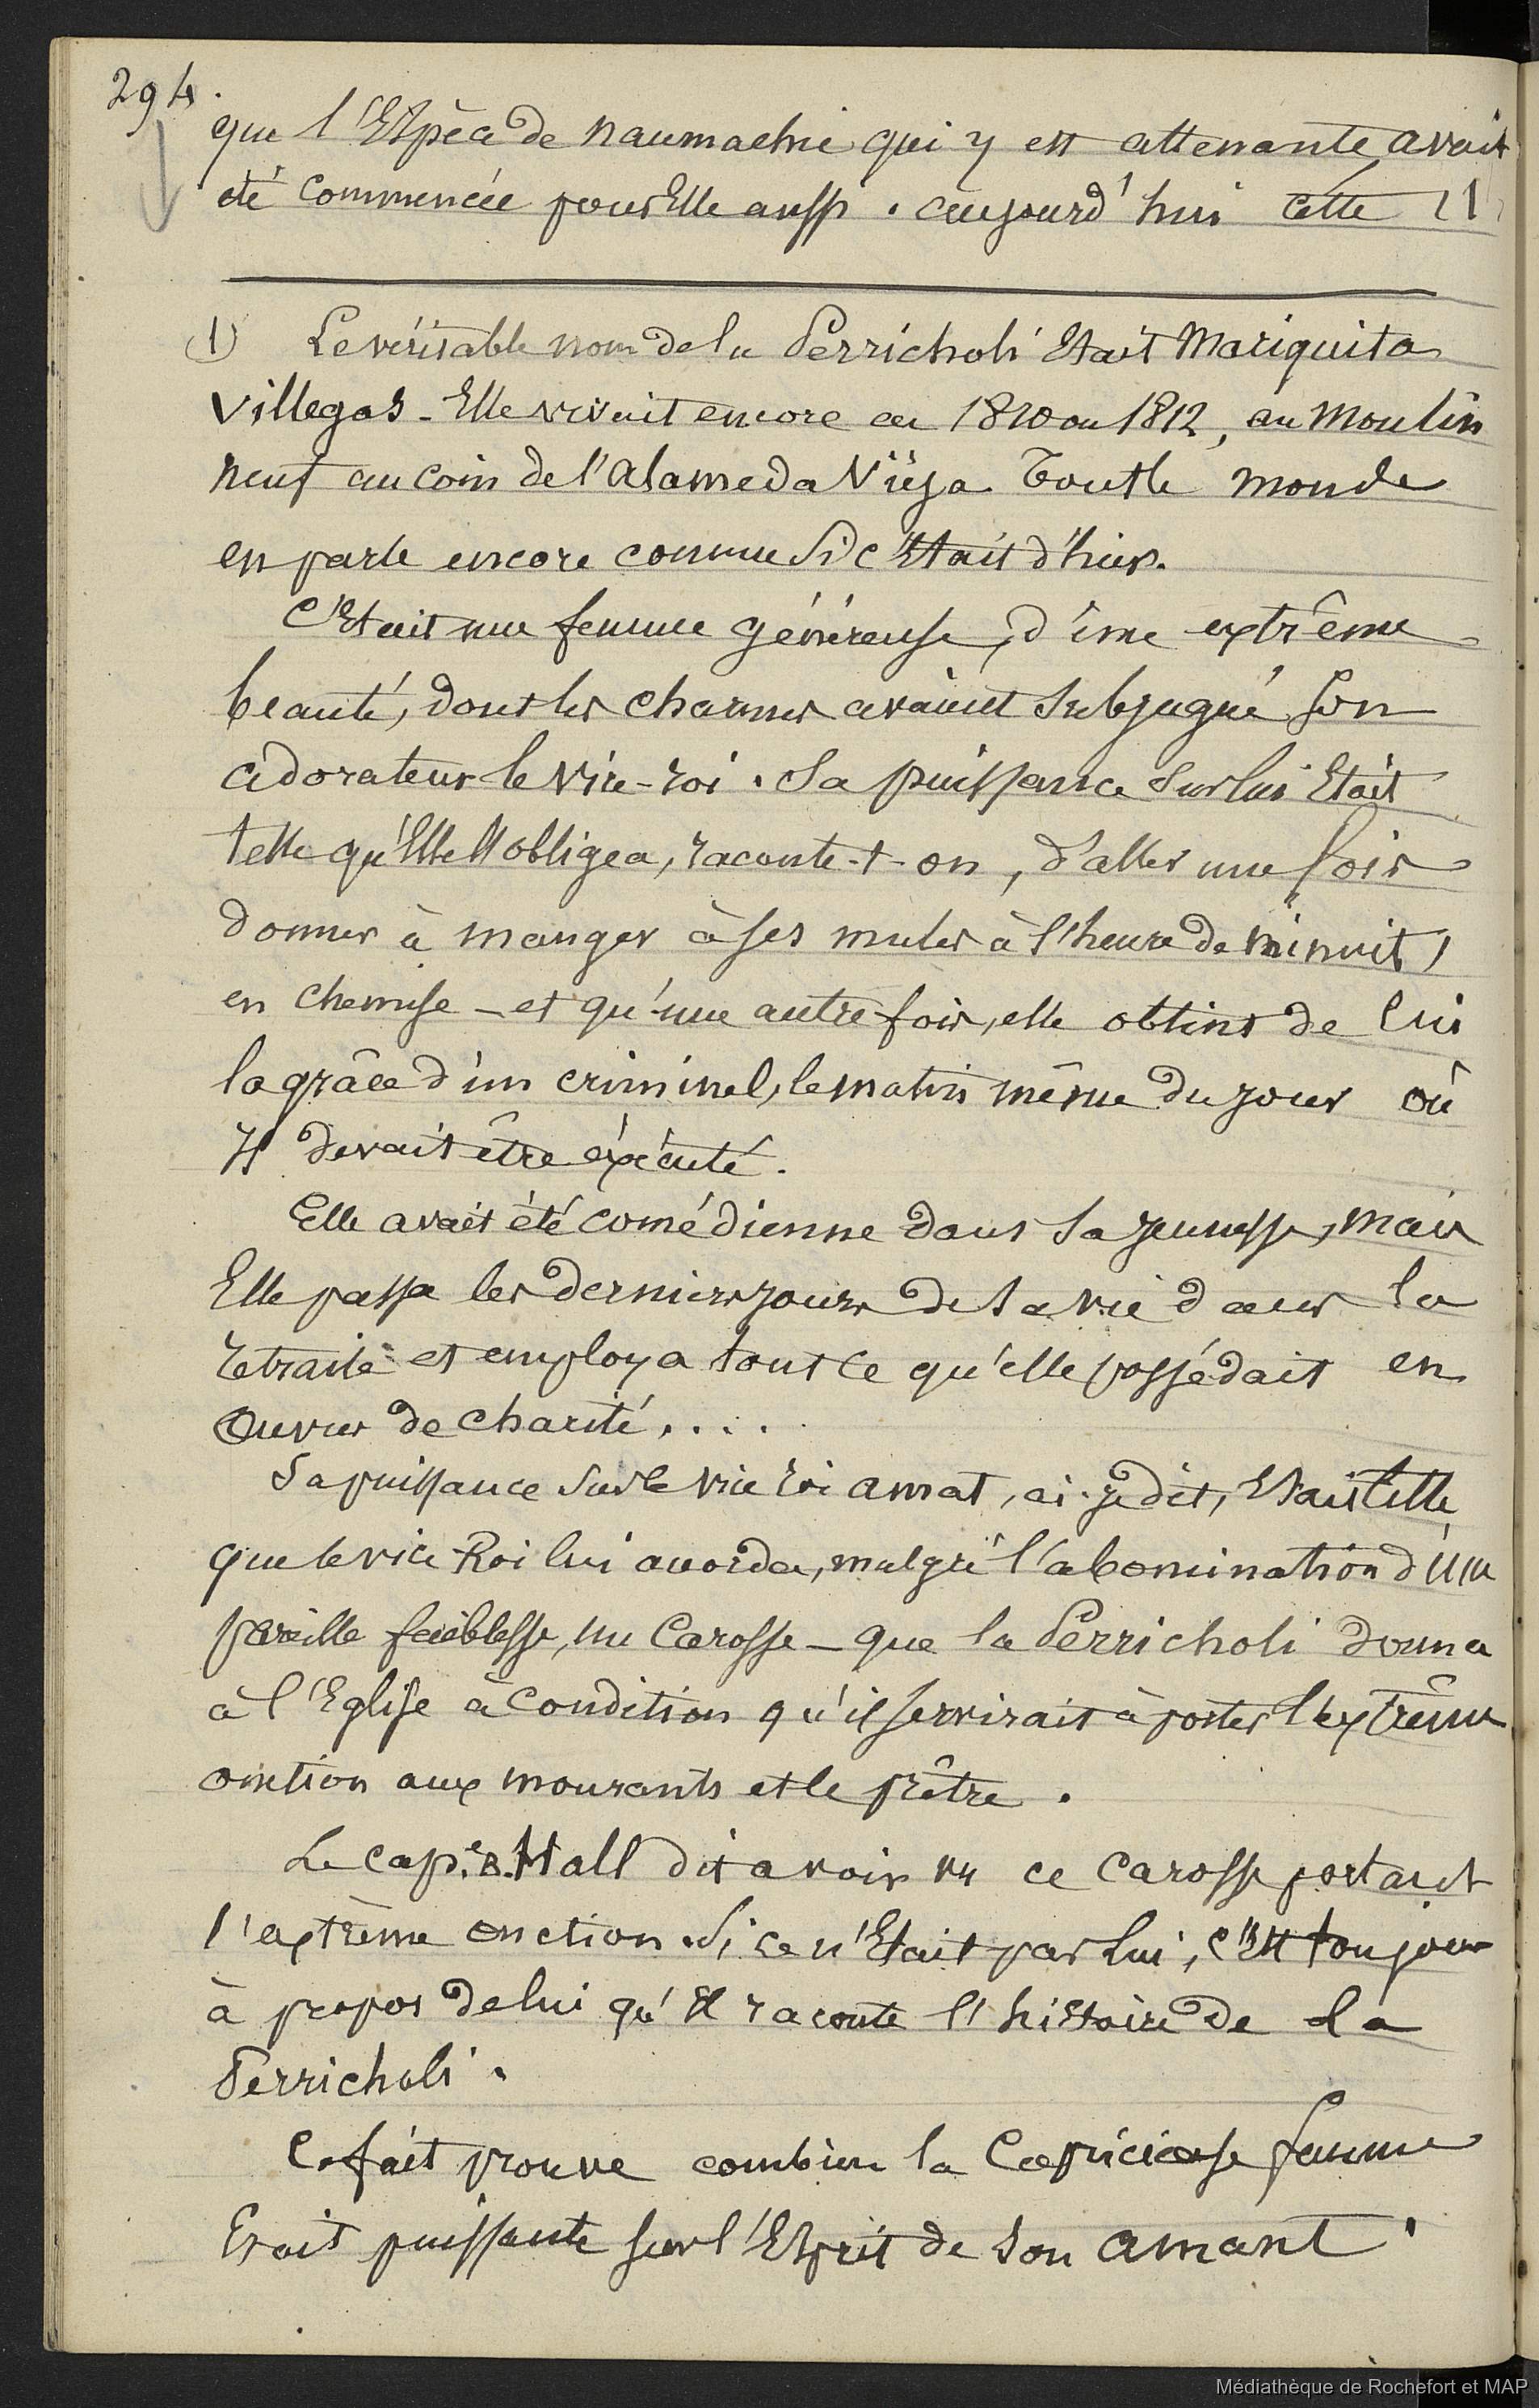 294.
que l'Espèce de naumachie qui y est attenante avait
été commencée pour Elle aussi. aujourd'hui cette (1)
(1) Le véritable nom de la Perricholi Etait Mariquita
Villegas - Elle vivait encore en 1810 ou 1812, au Moulin
neuf au coin de l'Alameda Viéja. Tout le monde
en parle encore comme si c'Etait d'hier.
C'Etait une femme généreuse, d'une extrême
beauté, dont les charmes avaient subjugué son
adorateur le vice-roi. Sa puissance sur lui Etait
telle qu'Elle l'obligea, raconte-t-on, d'aller une fois
donner à manger à ses mules à l'heure de minuit,
en chemise - et qu'une autre fois, elle obtint de lui
la grâce d'un criminel, le matin même du jour où
Il devait être éxécuté.
Elle avait été comédienne dans sa jeunesse, mais
Elle passa les derniers jours de sa vie dans la
retraite et employa tout ce qu'elle possédait en
Œuvres de charité.....
Sa puissance sur le vice roi amat, ai-je dit, Etait telle
que le vice-Roi lui accorda, malgré l'abomination d'une
pareille faiblesse, un Carosse - que la Perricholi donna
à l'Eglise à condition qu'il servirait à porter l'extrême
onction aux mourants et le prêtre.
Le cap.e B. Hall dit avoir vu ce Carosse portant
l'extrème onction. Si ce n'Etait pas lui, c'Est toujours
à propos de lui qu'Il raconte l'histoire de la
Perricholi.
Ce fait prouve combien la Capricieuse femme
Etait puissante sur l'Esprit de son amant.
Médiathèque de Rochefort et MAP